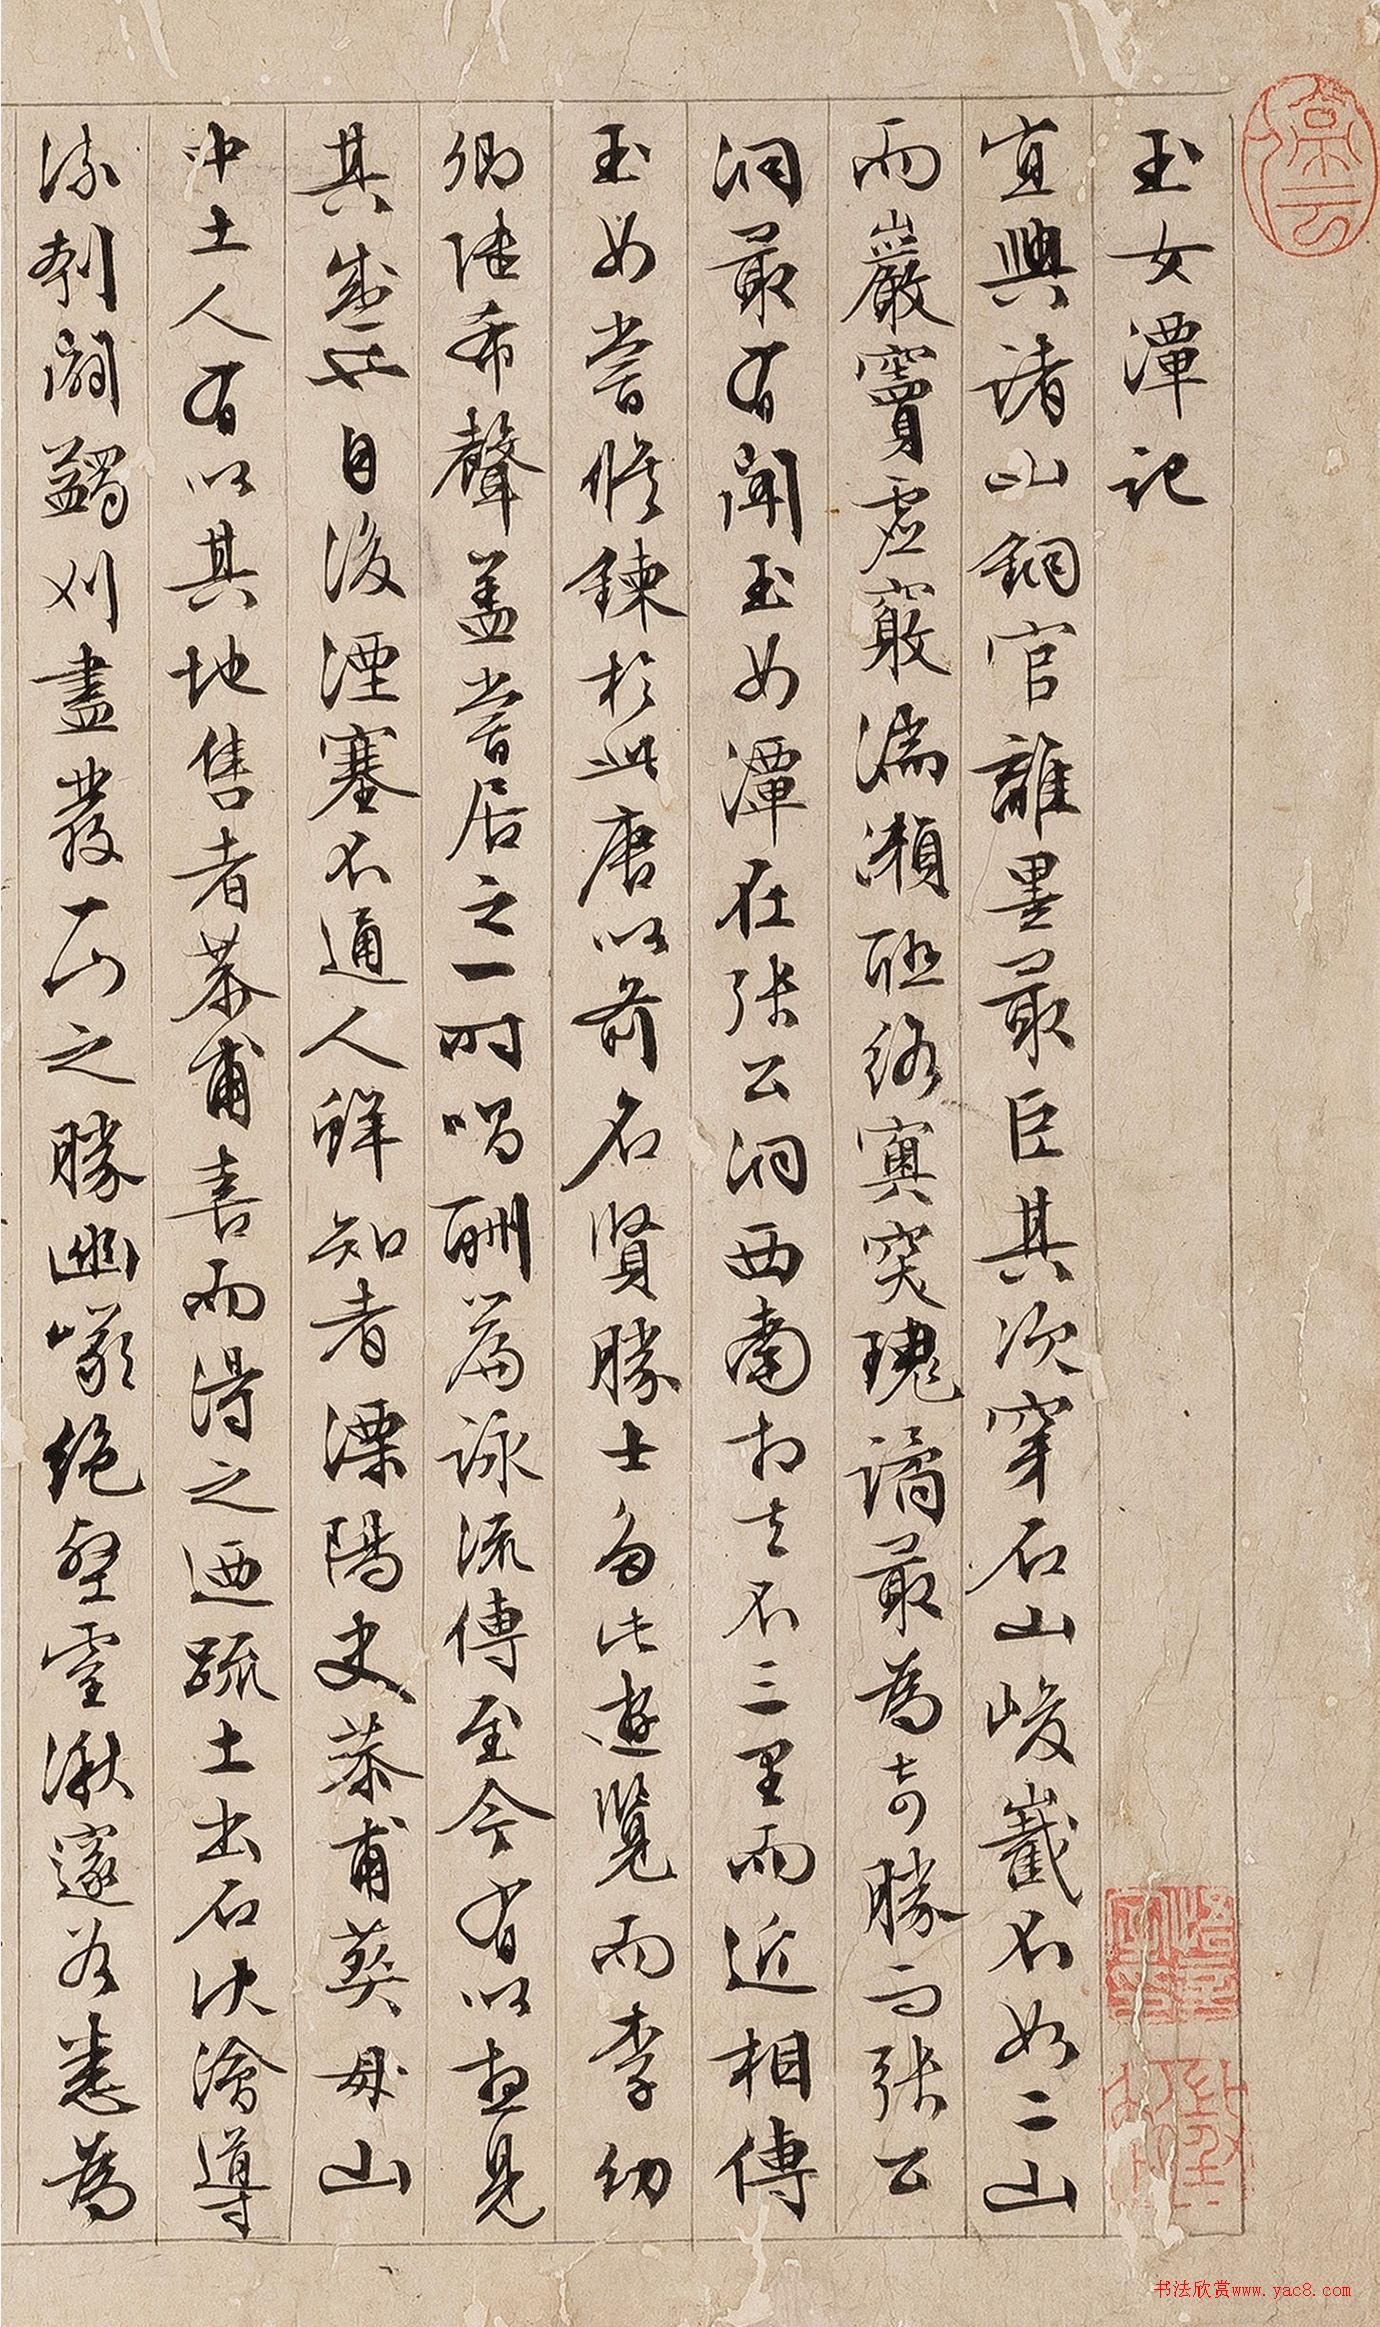 玉女潭記
宜興諸山銅官離墨最巨其次穿石山峻截不如二山
而巖竇虛窾湍瀨聯絡寘窔瑰譎最為奇勝而張公
洞最有聞玉女潭在張公洞西南相去不三里而近相傳
玉女嘗修鍊於此唐以前名賢勝士多此遊覽而李幼
卿陸希聲蓋嘗居之一時唱酬篇詠流傳至今有以想見
其盛焉自後湮塞不通人鮮知者溧陽史恭甫葬母山
中土人有以其地售者恭甫喜而得之迺疏土出石決澮導
流刜閼蠲刈盡發一山之勝幽巘絕壑靈湫邃谷悉為
書法欣賞www.yac8.com